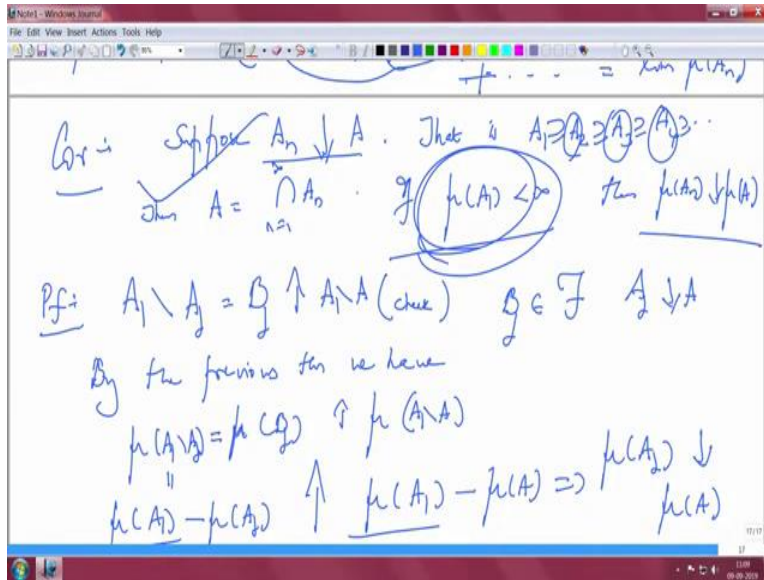 Note1 - Windows Journal
File Edit View Insert Actions Tools Help
= lim μ(An)
Cor:- Suppose An ↓ A. That is A1 ⊇ A2 ⊇ A3 ⊇ A4 ⊇ ..
Then A = ∩_{n=1}^∞ An. If μ(A1) < ∞ then μ(An) ↓ μ(A)
Pf:- A1 \ Aj = Bj ↑ A1\A (check) Bj ∈ F Aj ↓ A
By the previous thm we have
μ(A1\Aj) = μ(Bj) ↑ μ(A1\A)
μ(A1) - μ(Aj) ↑ μ(A1) - μ(A) => μ(Aj) ↓
μ(A)
17/17
17
11:09
09-09-2019